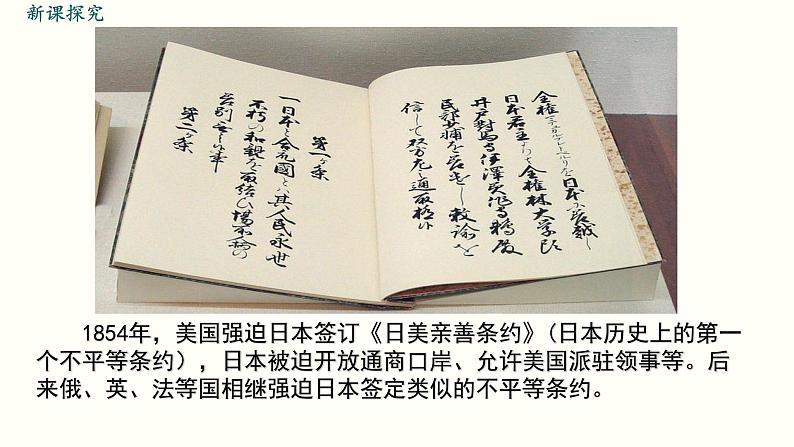 新课探究
全権 を日本に差越し
日本君主よりハ全権林大学頭
井戸對馬守伊澤美作守鵜殿
民部少輔を差遣し敕諭を
信して双方左之通取極候
第一ヶ条
一日本と合衆國とハ其人民永世
不朽の和親を取結ひ場所人柄の
差別無之候事
第二ヶ条
1854年，美国强迫日本签订《日美亲善条约》（日本历史上的第一
个不平等条约），日本被迫开放通商口岸、允许美国派驻领事等。后
来俄、英、法等国相继强迫日本签定类似的不平等条约。